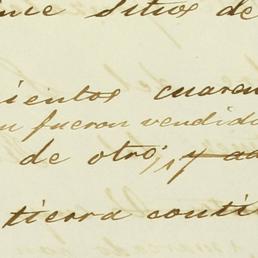 ince Sitios de
ientos cuaren
n fueron vendido
de otro; y a
tierra conti